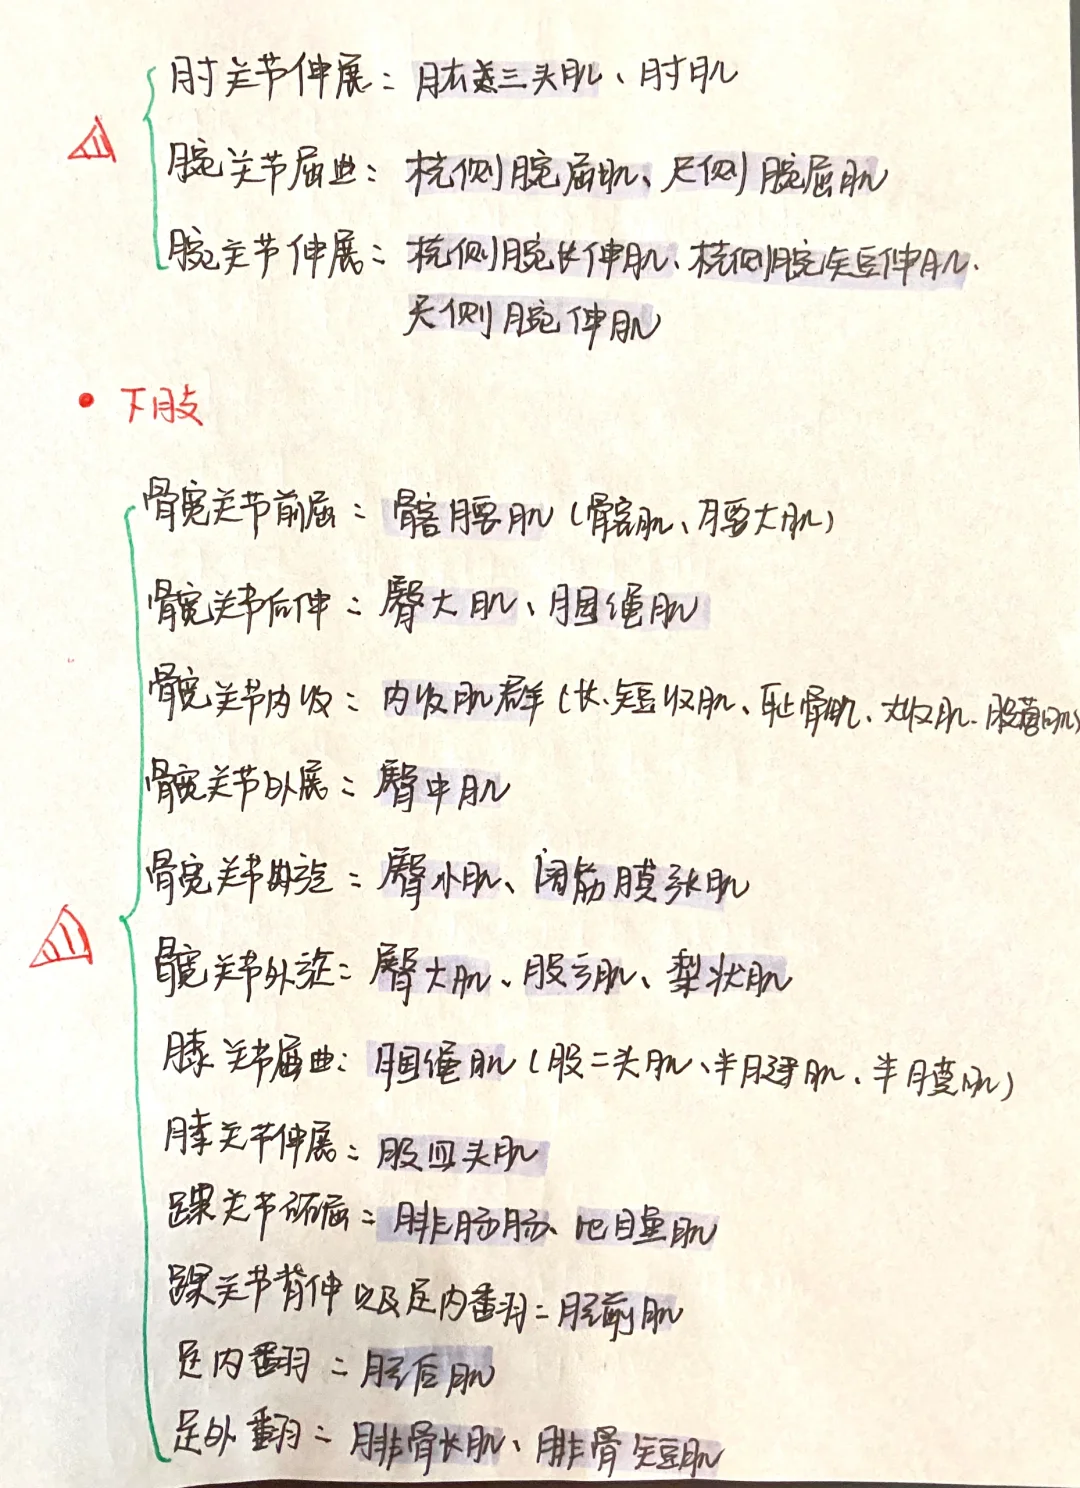 肘关节伸展：肱三头肌、肘肌
腕关节屈曲：桡侧腕屈肌、尺侧腕屈肌
腕关节伸展：桡侧腕长伸肌、桡侧腕短伸肌、
尺侧腕伸肌
• 下肢
髋关节前屈：髂腰肌（髂肌、腰大肌）
髋关节后伸：臀大肌、腘绳肌
髋关节内收：内收肌群（长、短收肌、耻骨肌、大收肌、股薄肌）
髋关节外展：臀中肌
髋关节内旋：臀小肌、阔筋膜张肌
髋关节外旋：臀大肌、股方肌、梨状肌
膝关节屈曲：腘绳肌（股二头肌、半腱肌、半膜肌）
膝关节伸展：股四头肌
踝关节跖屈：腓肠肠、比目鱼肌
踝关节背伸以及足内翻：胫前肌
足内翻：胫后肌
足外翻：腓骨长肌、腓骨短肌